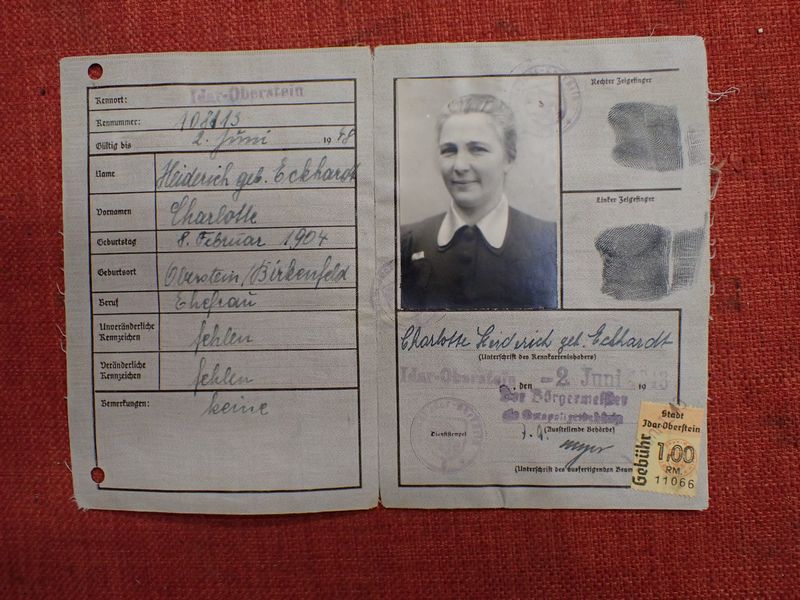 Kennort: Idar-Oberstein
Kennummer:
Gültig bis 2. Juni 1948
Name Heiderich geb. Eckhardt
Vornamen Charlotte
Geburtstag 8. Februar 1904
Geburtsort Oberstein/Birkenfeld
Beruf Ehefrau
Unveränderliche Kennzeichen fehlen
Veränderliche Kennzeichen fehlen
Bemerkungen: keine
Rechter Zeigefinger
Linker Zeigefinger
Charlotte Heiderich geb. Eckhardt
(Unterschrift des Kennkarteninhabers)
Idar-Oberstein, den -2. Juni 1943
Der Bürgermeister
als Ortspolizeibehörde
(Ausstellende Behörde)
Dienststempel
(Unterschrift des ausfertigenden
Stadt
Idar-Oberstein
Gebühr
1,00
RM.
11066